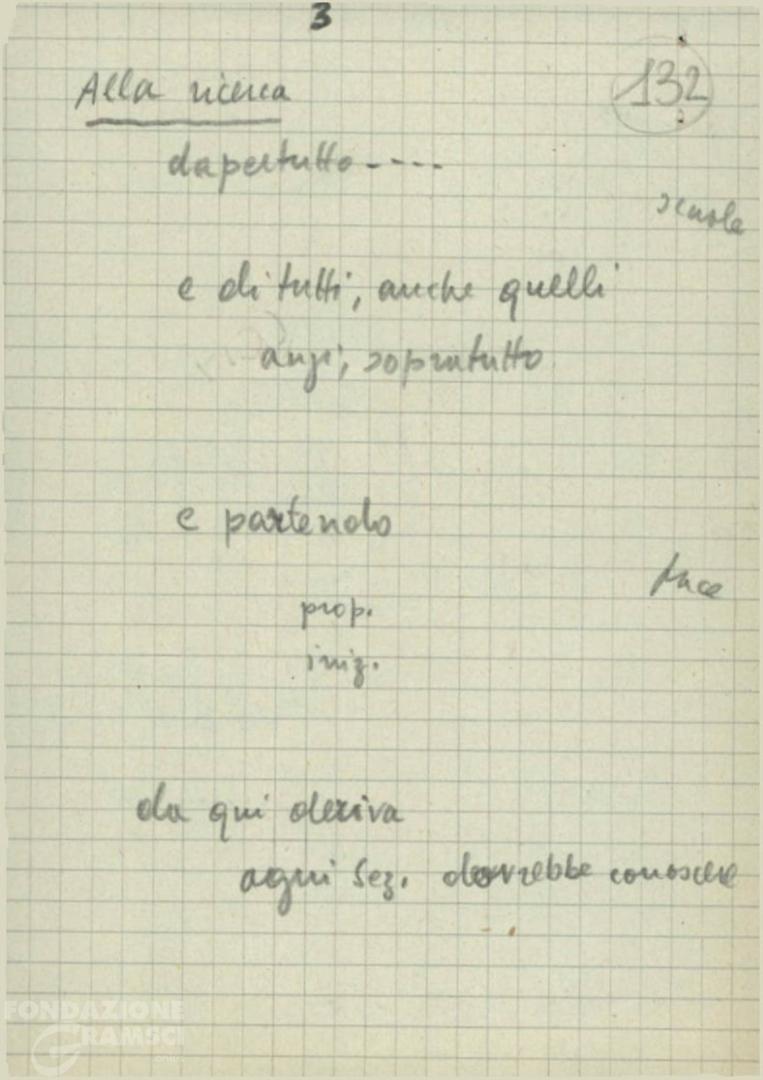 3
132
Alla ricerca
dapertutto ----
scuole
e di tutti, anche quelli
anzi, sopratutto
e partendo
pace
prop.
iniz.
da qui deriva
ogni Sez. dovrebbe conoscere
FONDAZIONE
GRAMSCI